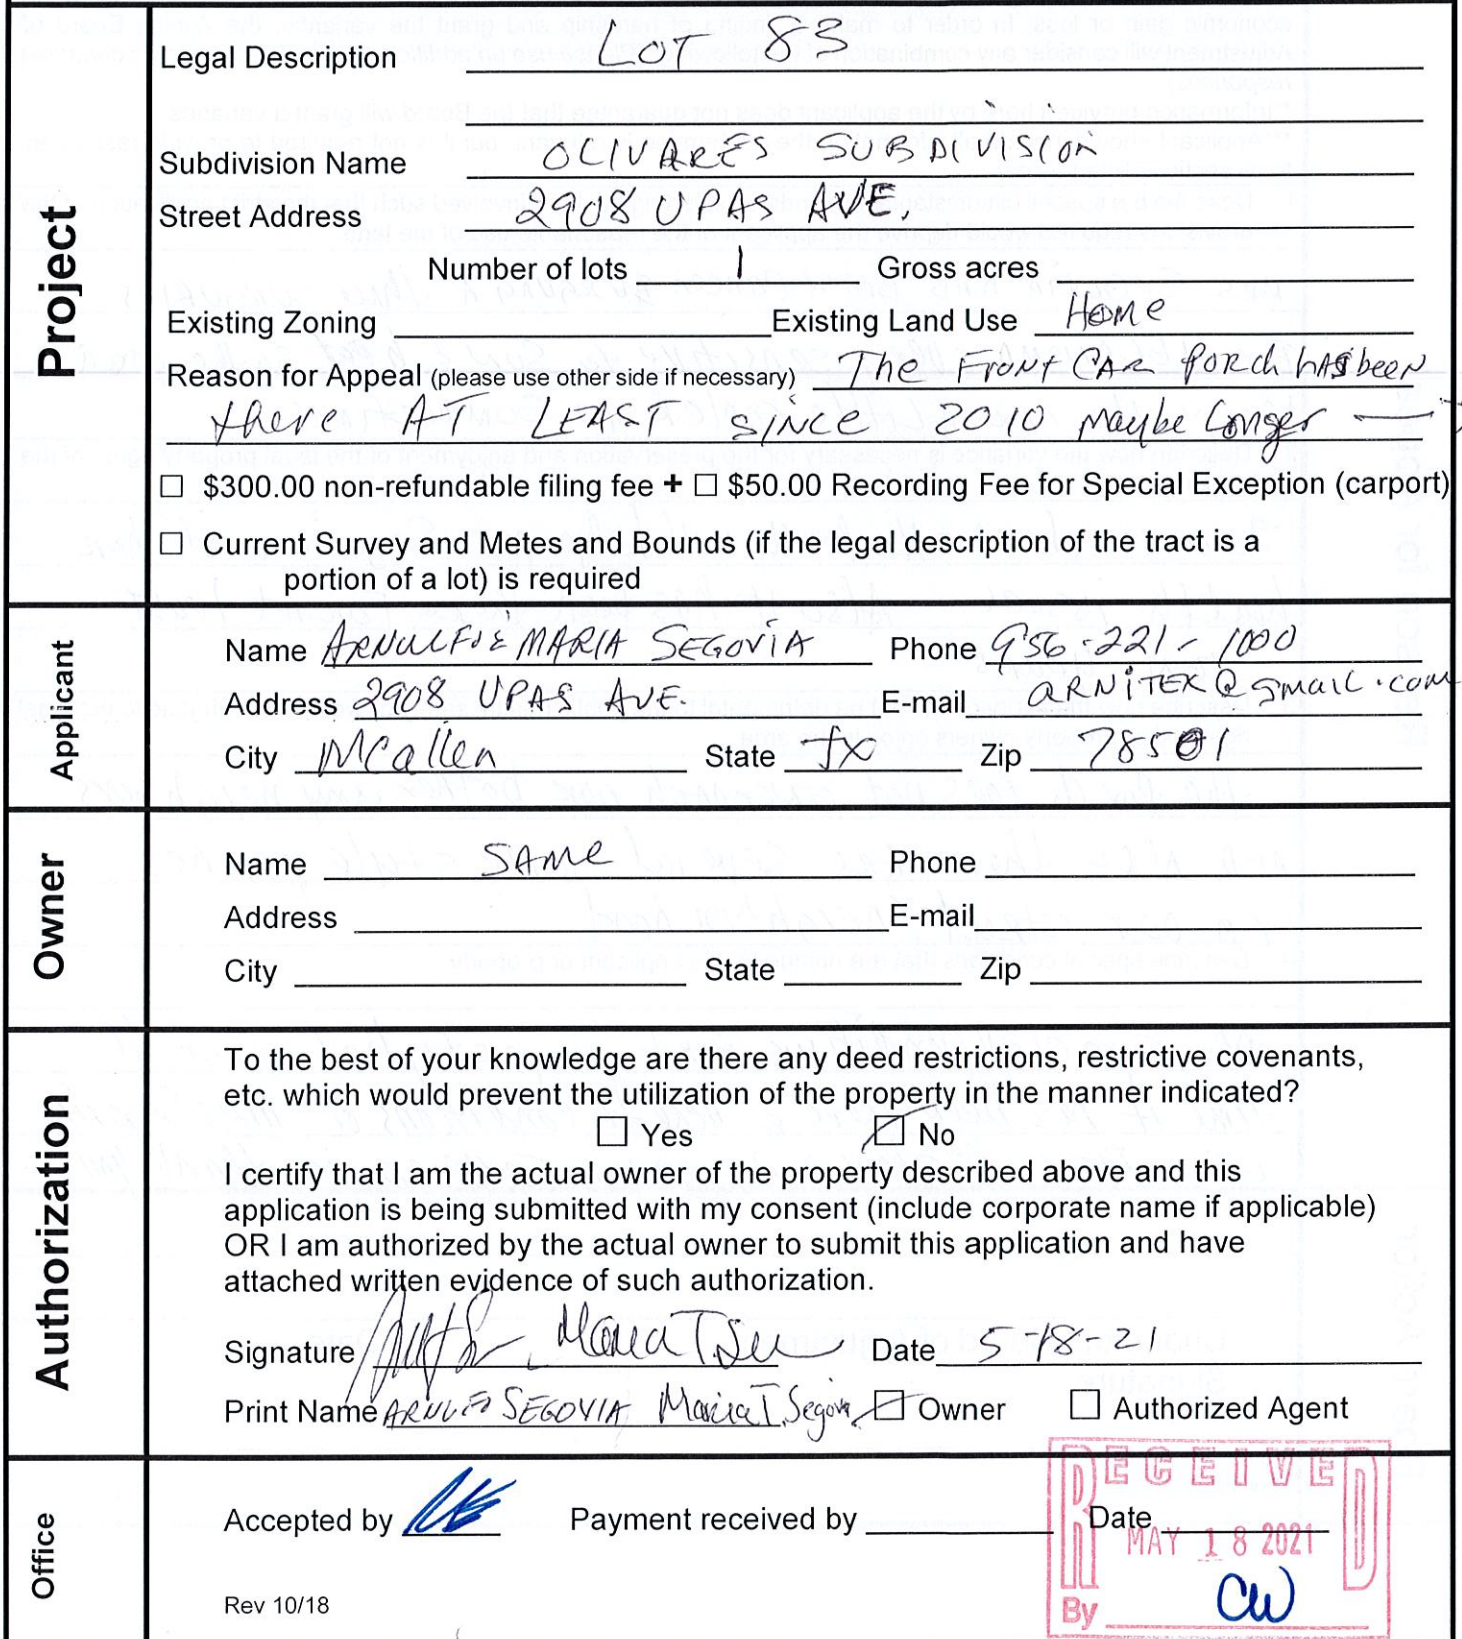 Project
Legal Description LOT 83
Subdivision Name OLIVARES SUBDIVISION
Street Address 2908 UPAS AVE.
Number of lots 1 Gross acres
Existing Zoning Existing Land Use Home
Reason for Appeal (please use other side if necessary) The Front CAR PORch hAS been
there AT LEAST SINCE 2010 Maybe Longer
☐ $300.00 non-refundable filing fee + ☐ $50.00 Recording Fee for Special Exception (carport)
☐ Current Survey and Metes and Bounds (if the legal description of the tract is a
portion of a lot) is required
Applicant
Name ARNULFO & MARIA SEGOVIA Phone 956-221-1000
Address 2908 UPAS AVE. E-mail ARNITEX@gmail.com
City MCallen State TX Zip 78501
Owner
Name SAMe Phone
Address E-mail
City State Zip
Authorization
To the best of your knowledge are there any deed restrictions, restrictive covenants,
etc. which would prevent the utilization of the property in the manner indicated?
☐ Yes ☑ No
I certify that I am the actual owner of the property described above and this
application is being submitted with my consent (include corporate name if applicable)
OR I am authorized by the actual owner to submit this application and have
attached written evidence of such authorization.
Signature Maria T Date 5-18-21
Print Name ARNULFO SEGOVIA Maria T. Segovia ☑ Owner ☐ Authorized Agent
Office
Accepted by Payment received by Date
RECEIVED
MAY 18 2021
By CW
Rev 10/18